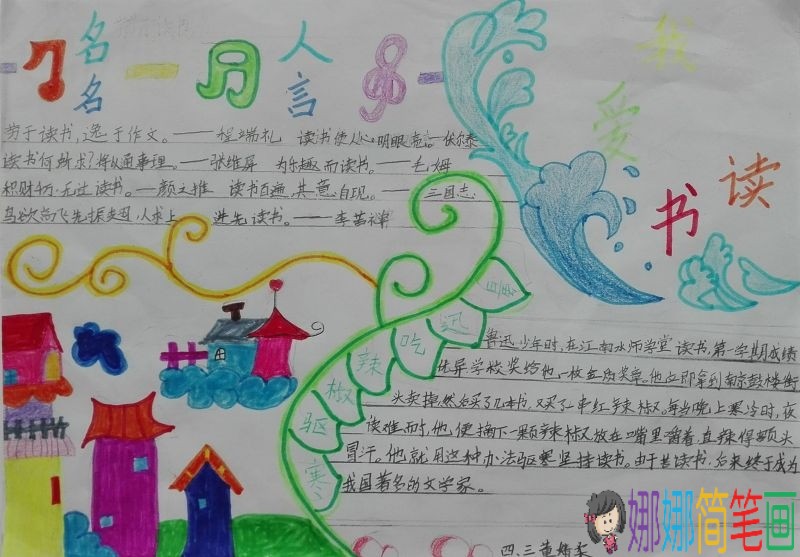 名名人言
我爱读书
劳于读书，逸于作文。——程端礼 读书使人心明眼亮。—伏尔泰
读书何所求？将以通事理。——张维屏 为乐趣而读书。——毛姆
积财千万，无过读书。—颜之推 读书百遍，其意自现。——三国志
鸟欲高飞先振翅，人求上进先读书。——李苦禅
鲁迅吃辣椒驱寒
鲁迅少年时，在江南水师学堂读书，第一学期成绩
优异，学校奖给他一枚金质奖章。他立即拿到南京鼓楼街
头卖掉，然后买了几本书，又买了一串红辣椒。每当晚上寒冷时，夜
读难耐，他便摘下一颗辣椒放在嘴里嚼着，直辣得额头
冒汗。他就用这种办法驱寒坚持读书。由于苦读书，后来终于成为
我国著名的文学家。
四.三董婧
娜娜简笔画